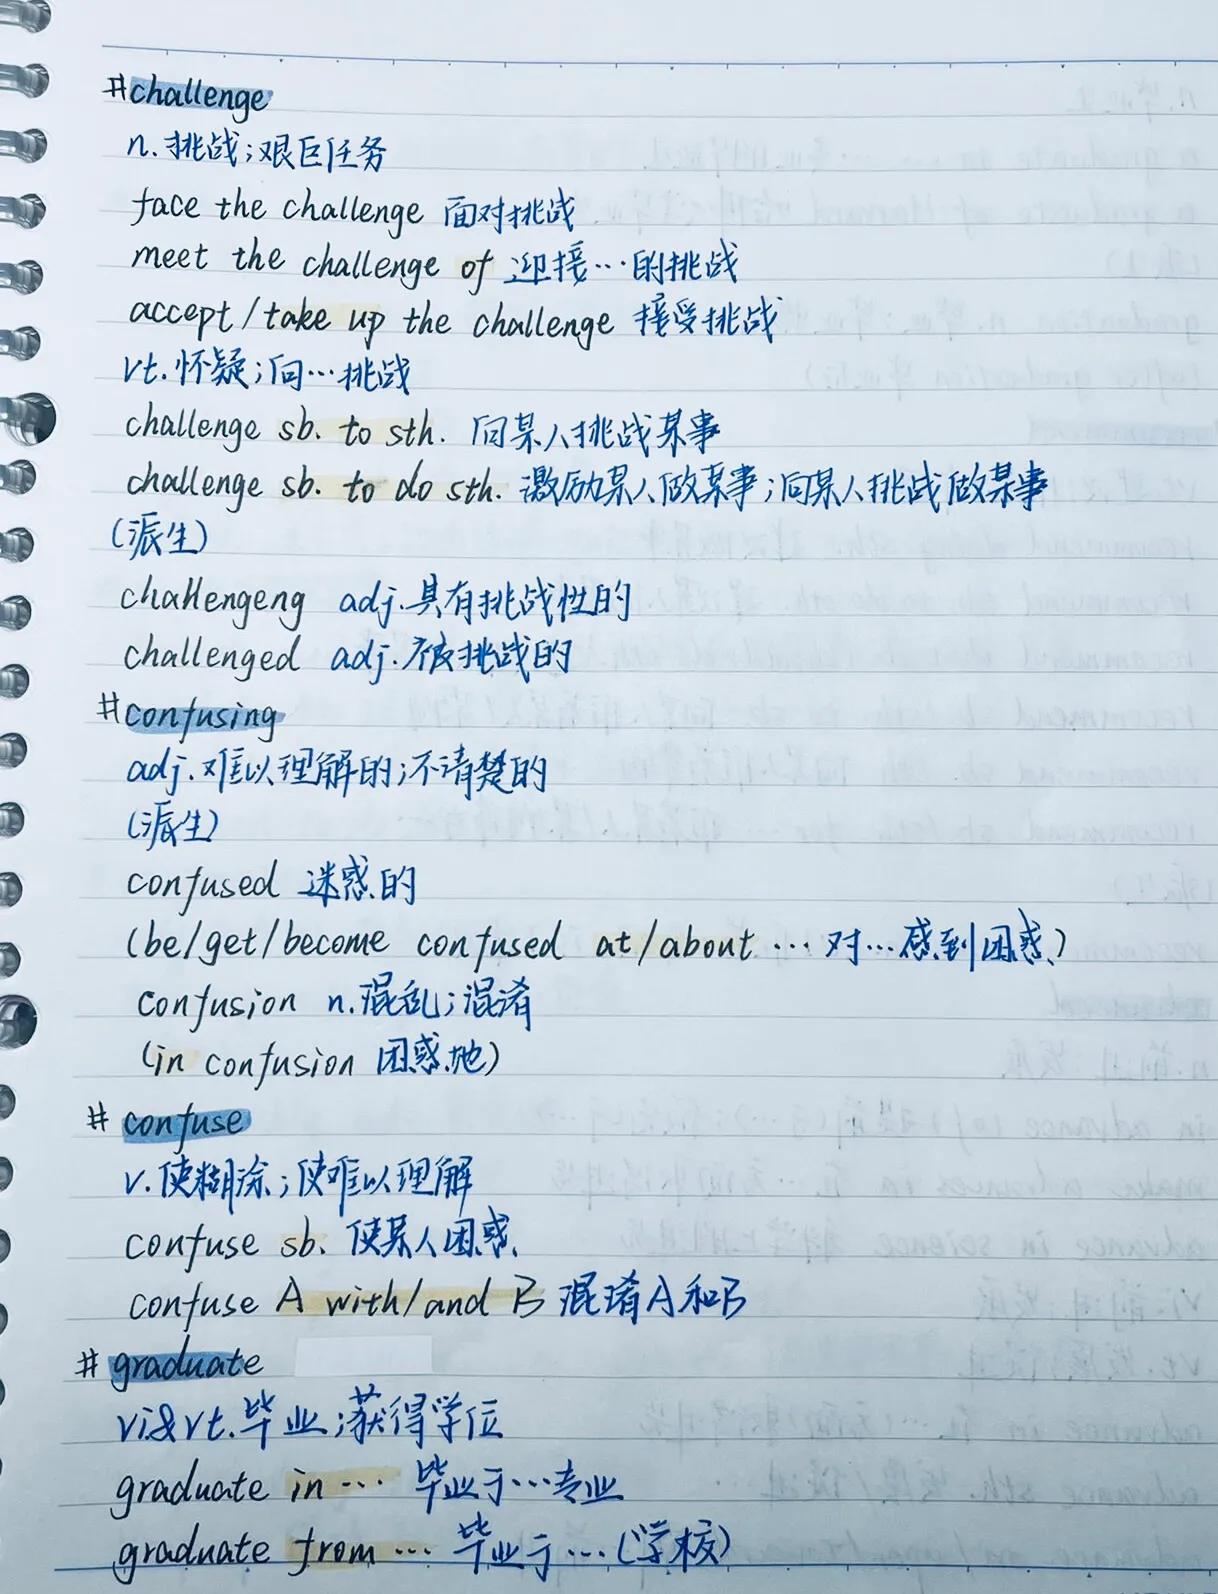 #challenge
n.挑战;艰巨任务
face the challenge 面对挑战
meet the challenge of 迎接…的挑战
accept/take up the challenge 接受挑战
vt.怀疑;向…挑战
challenge sb. to sth. 向某人挑战某事
challenge sb. to do sth. 激励某人做某事;向某人挑战做某事
(派生)
challengeng adj.具有挑战性的
challenged adj.被挑战的
#confusing
adj.难以理解的;不清楚的
(派生)
confused 迷惑的
(be/get/become confused at/about … 对…感到困惑)
confusion n.混乱;混淆
(in confusion 困惑地)
# confuse
v.使糊涂;使难以理解
confuse sb. 使某人困惑
confuse A with/and B 混淆A和B
# graduate
vi&vt.毕业;获得学位
graduate in … 毕业于…专业
graduate from … 毕业于…(学校)